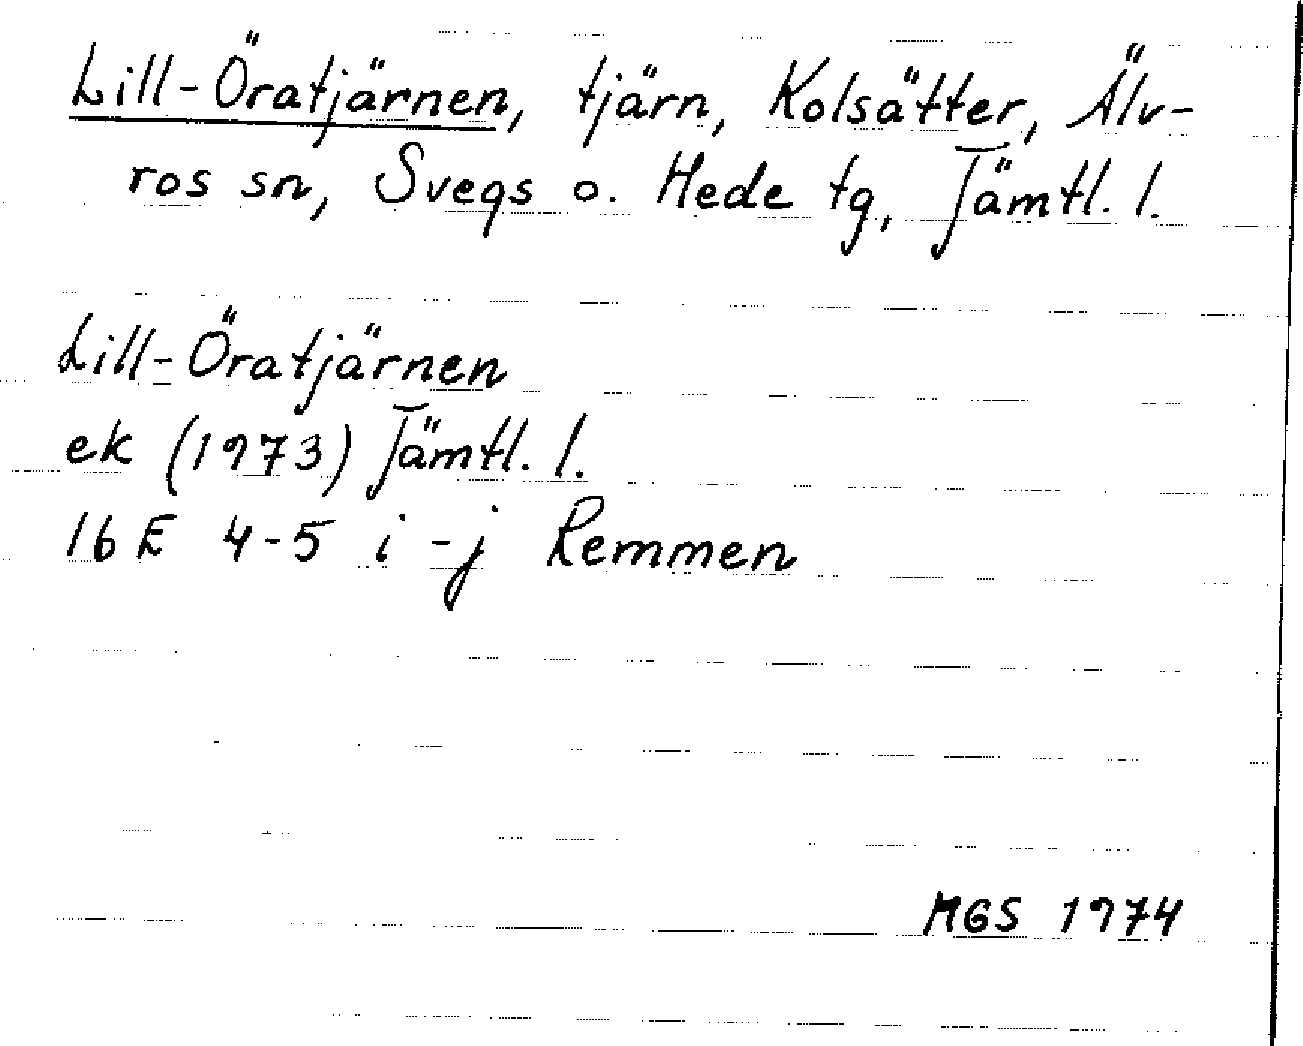 Lill-Öratjärnen, tjärn, Kolsätter, Älv-
ros sn, Svegs o. Hede tg, Jämtl. l.
Lill-Öratjärnen
ek (1973) Jämtl. l.
16 E 4-5 i-j Remmen
MGS 1974